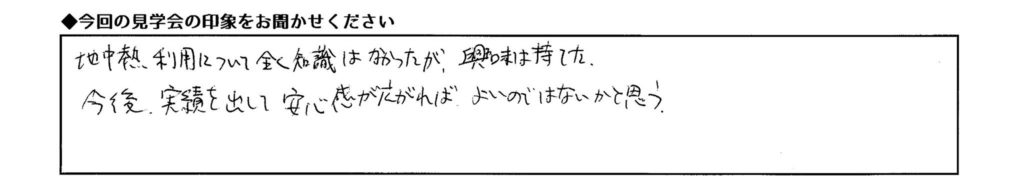 ◆今回の見学会の印象をお聞かせください
地中熱利用について全く知識はなかったが、興味は持てた。
今後、実績を出して安心感が広がればよいのではないかと思う。